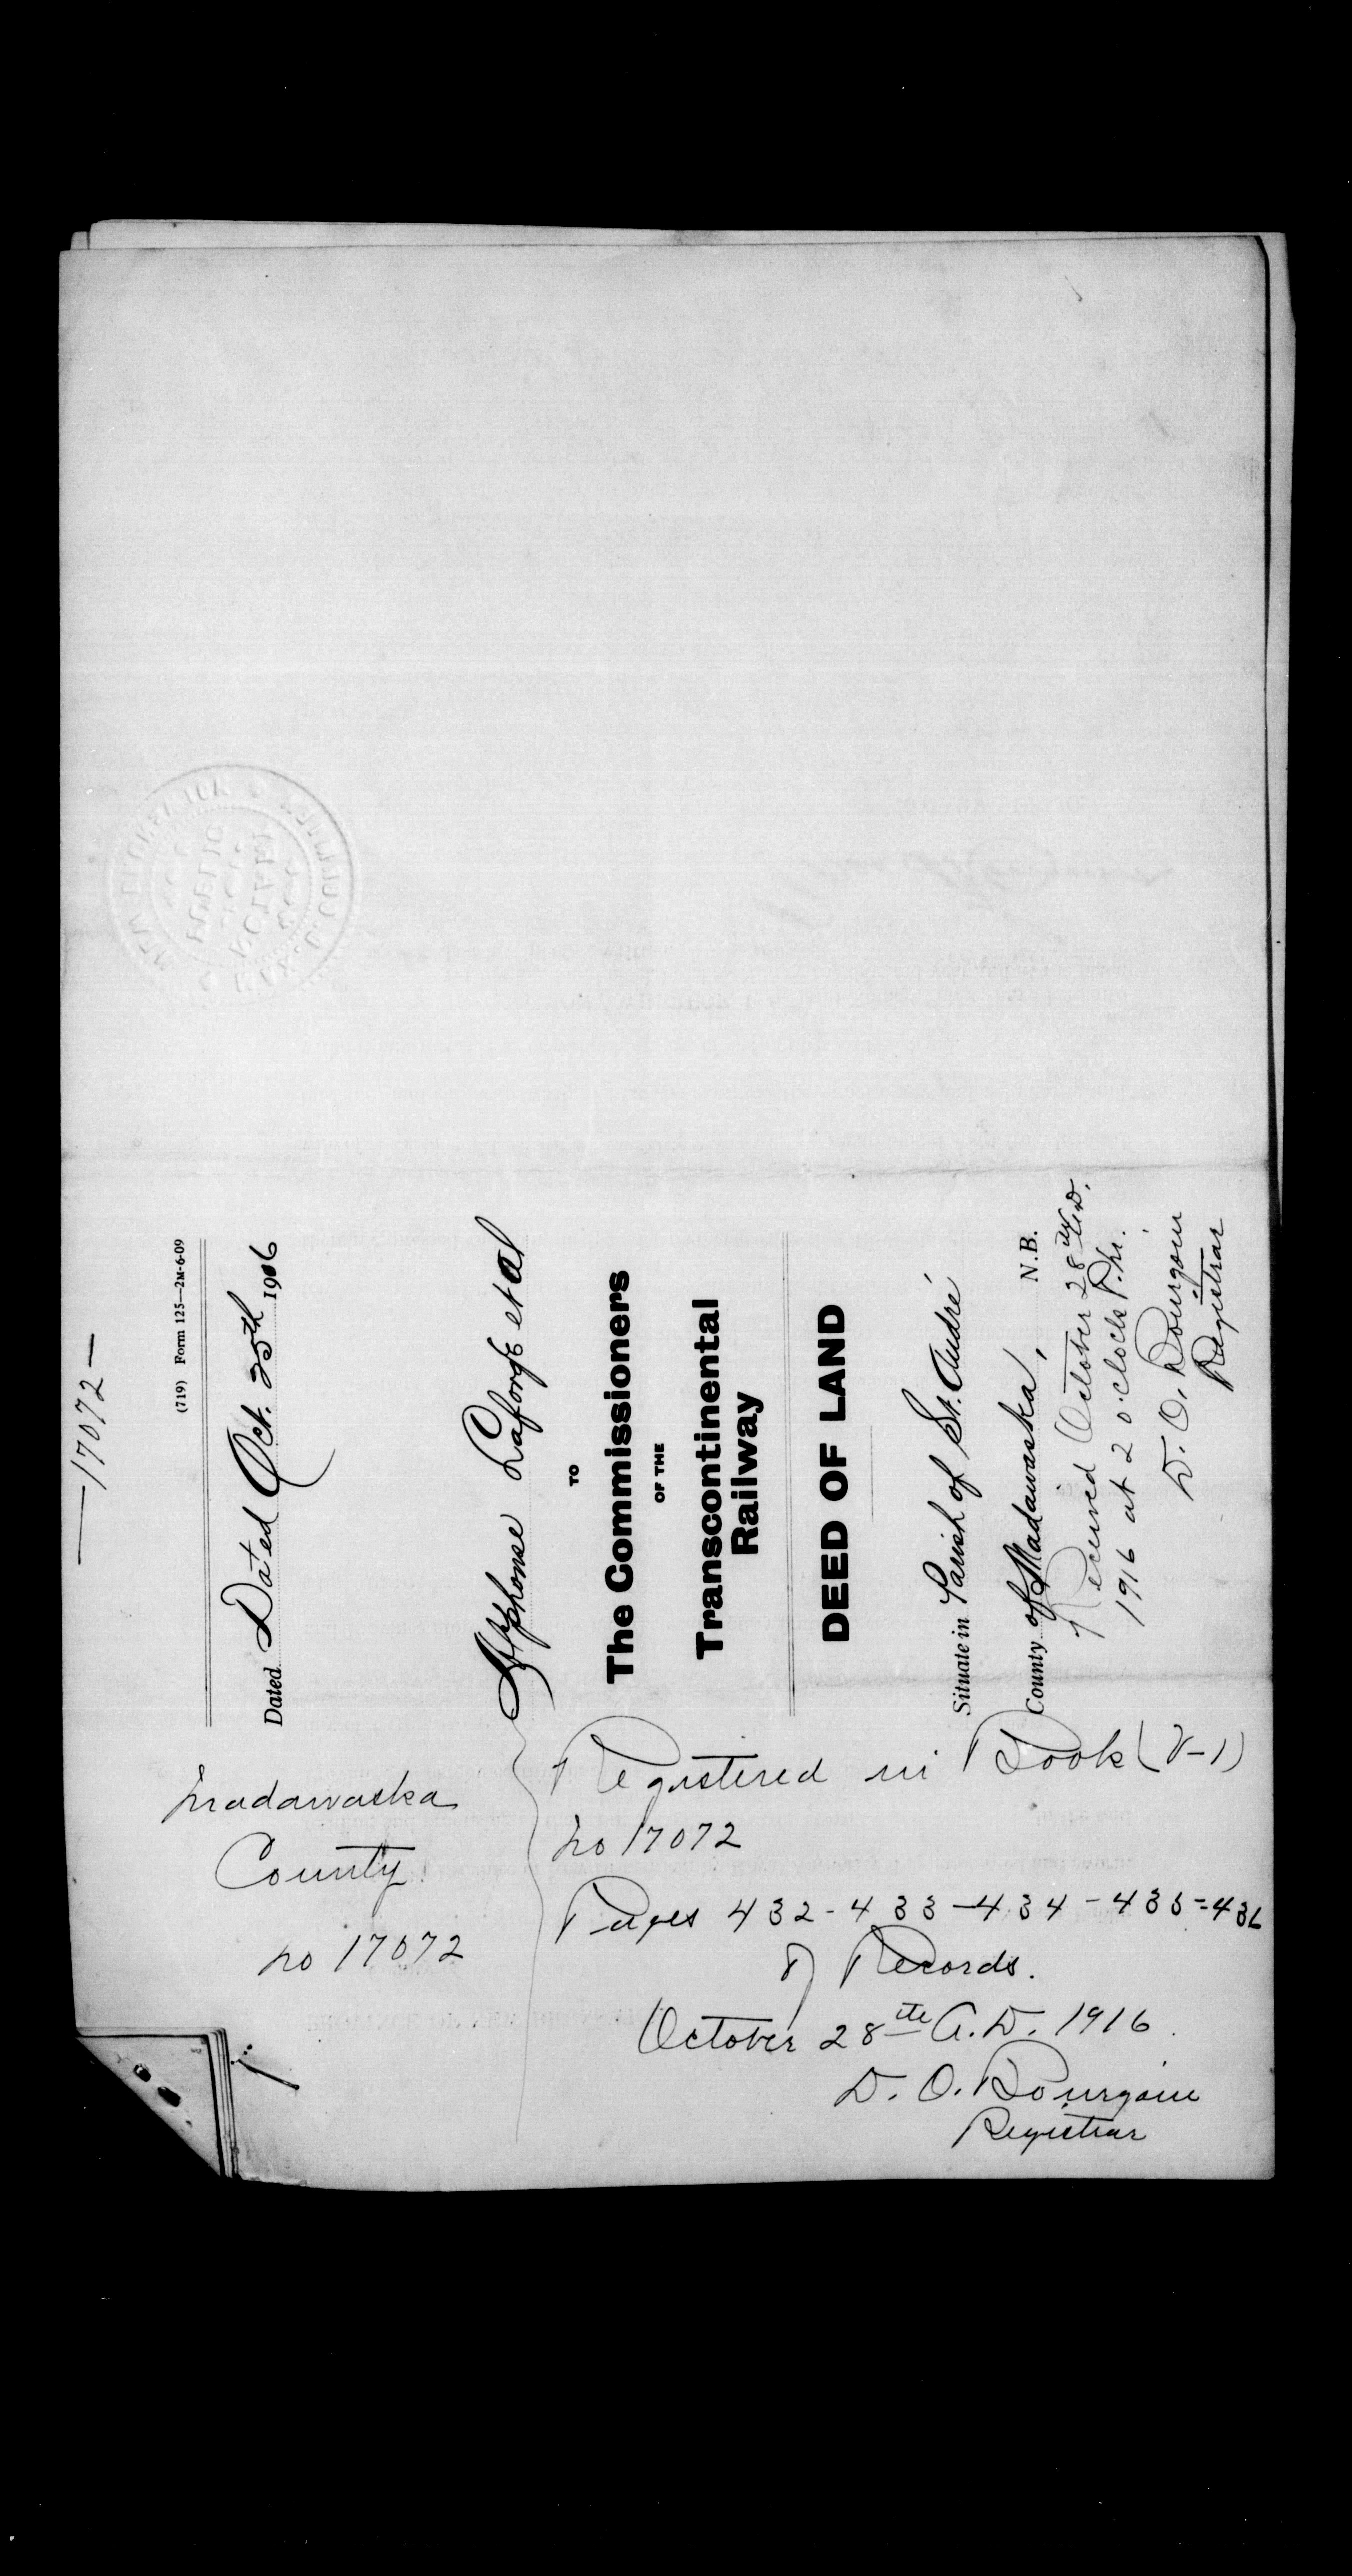 —17072—
(719) Form 125—2M-6-09
Dated Dated Oct. 25th 1906
Alphonse Laforge et al
TO
The Commissioners
OF THE
Transcontinental
Railway
DEED OF LAND
Situate in Parish of St. André
County of Madawaska, N.B.
Received October 28th A.D.
1916 at 2 o'clock P.M.
D. O. Bourgoin
Registrar
Madawaska
County
No 17072
Registered in Book
No 17072
Pages 432-433-434-435=436
of Records.
October 28th A.D. 1916
D. O. Bourgoin
Registrar
NEW BRUNSWICK
NOTARY
PUBLIC